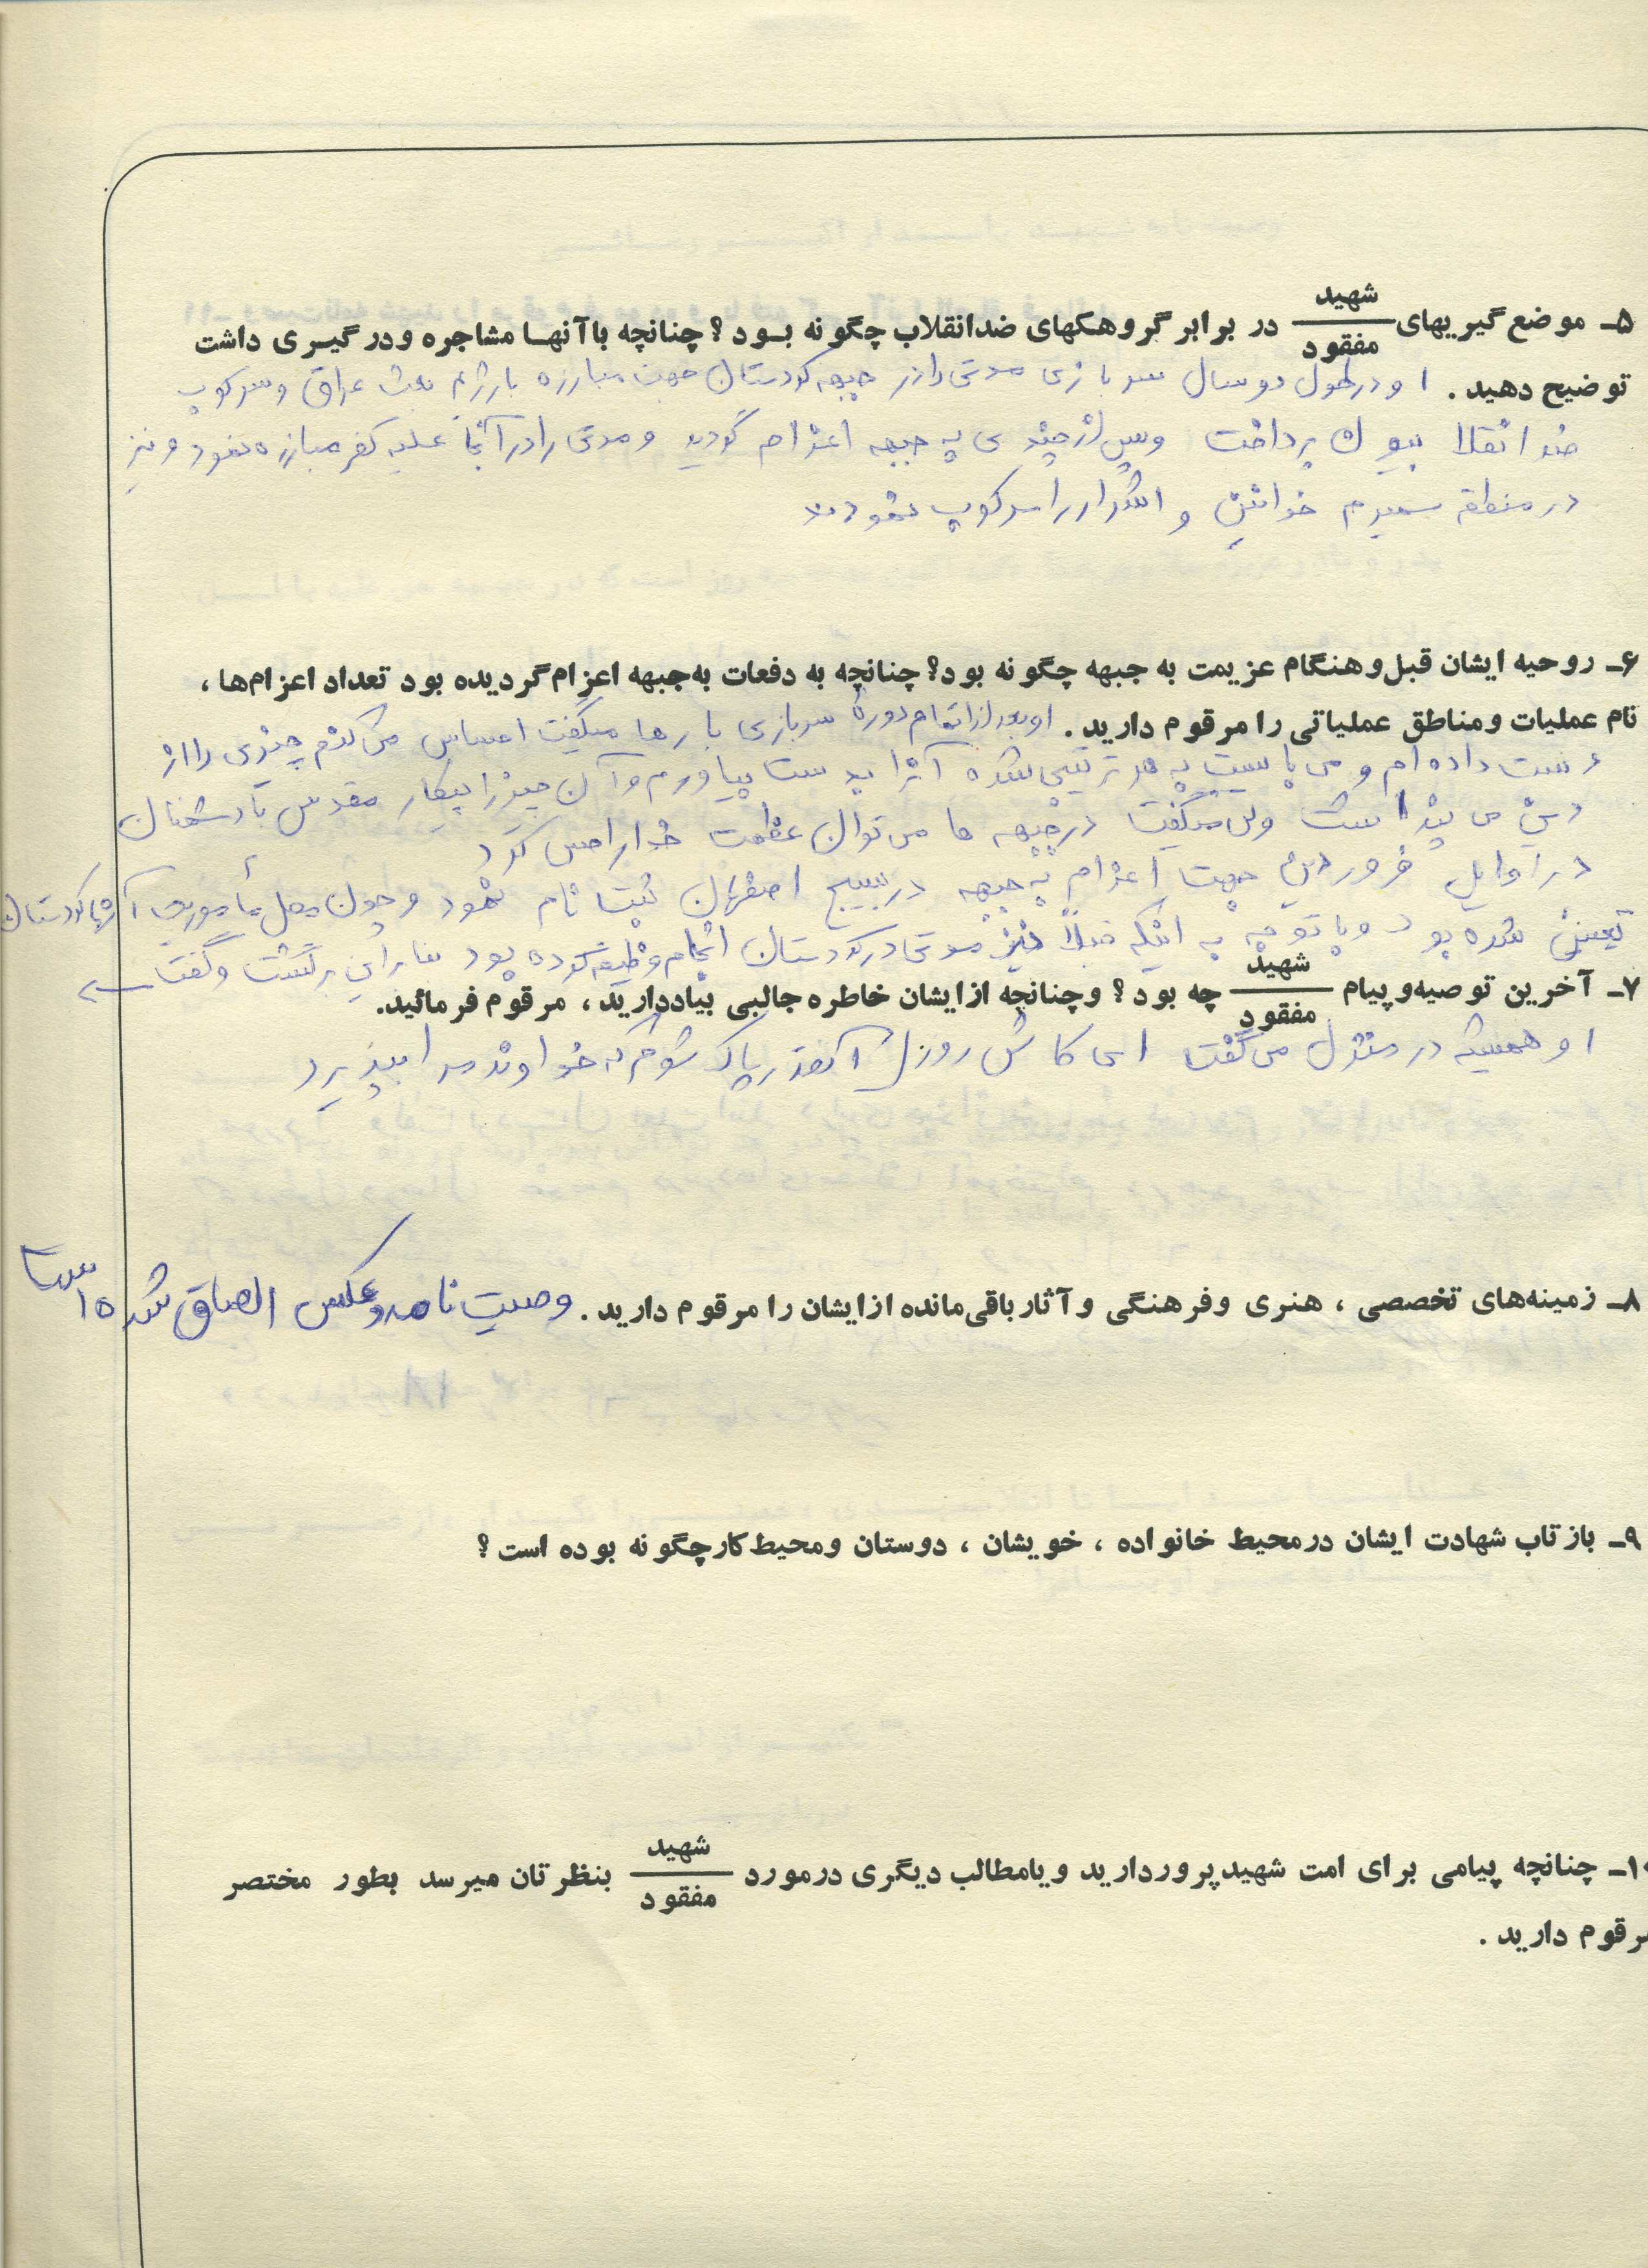 ۵ـ موضع‌گیریهای شهید/مفقود در برابر گروهکهای ضدانقلاب چگونه بود؟ چنانچه با آنها مشاجره و درگیری داشت
توضیح دهید. او در طول دو سال سربازی مدتی را در جبهه کردستان جهت مبارزه با رژیم بعث عراق و سرکوب
ضد انقلابیون پرداخت و پس از چندی به جبهه اعزام گردید و مدتی را در آنجا علیه کفر مبارزه نمود و نیز
در منطقه سمیرم خوانین و اشرار را سرکوب نمودند
۶ـ روحیه ایشان قبل و هنگام عزیمت به جبهه چگونه بود؟ چنانچه به دفعات به جبهه اعزام گردیده بود تعداد اعزام‌ها،
نام عملیات و مناطق عملیاتی را مرقوم دارید. او بعد از اتمام دورهٔ سربازی بارها میگفت احساس می‌کنم چیزی را از
دست داده‌ام و می‌بایست به هر ترتیبی شده آنرا بدست بیاورم و آن چیز را پیکار مقدس با دشمنان
دین می پنداشت ولی میگفت در جبهه ها می توان عظمت خدا را حس کرد
در اوایل فروردین جهت اعزام به جبهه در بسیج اصفهان ثبت نام نمود و چون محل مأموریت آنها کردستان
تعیین شده بود و با توجه به اینکه قبلاً نیز مدتی در کردستان انجام وظیفه کرده بود بنابراین برگشت و گفت
۷ـ آخرین توصیه و پیام شهید/مفقود چه بود؟ و چنانچه از ایشان خاطره جالبی بیاد دارید، مرقوم فرمائید.
او همیشه در منزل می گفت ای کاش روزی آنقدر پاک شوم که خداوند مرا بپذیرد
۸ـ زمینه‌های تخصصی، هنری و فرهنگی و آثار باقی‌مانده از ایشان را مرقوم دارید. وصیت نامه و عکس الصاق شده است
۹ـ بازتاب شهادت ایشان در محیط خانواده، خویشان، دوستان و محیط کار چگونه بوده است؟
۱۰ـ چنانچه پیامی برای امت شهیدپرور دارید و یا مطالب دیگری در مورد شهید/مفقود بنظرتان میرسد بطور مختصر
مرقوم دارید.